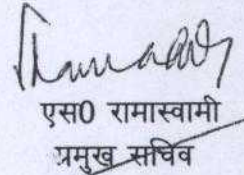 एस0 रामास्वामी
प्रमुख सचिव